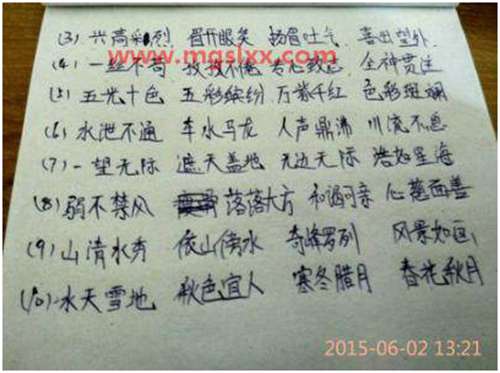 (3) 兴高彩烈 眉开眼笑 扬眉吐气 喜出望外
www.mgslxx.com
(4) 一丝不苟 孜孜不倦 专心致志 全神贯注
(5) 五光十色 五彩缤纷 万紫千红 色彩斑斓
(6) 水泄不通 车水马龙 人声鼎沸 川流不息
(7) 一望无际 遮天盖地 无边无际 浩如星海
(8) 弱不禁风 落落大方 和谒可亲 心慈面善
(9) 山清水秀 依山傍水 奇峰罗列 风景如画
(10) 水天雪地 秋色宜人 寒冬腊月 春花秋月
2015-06-02 13:21